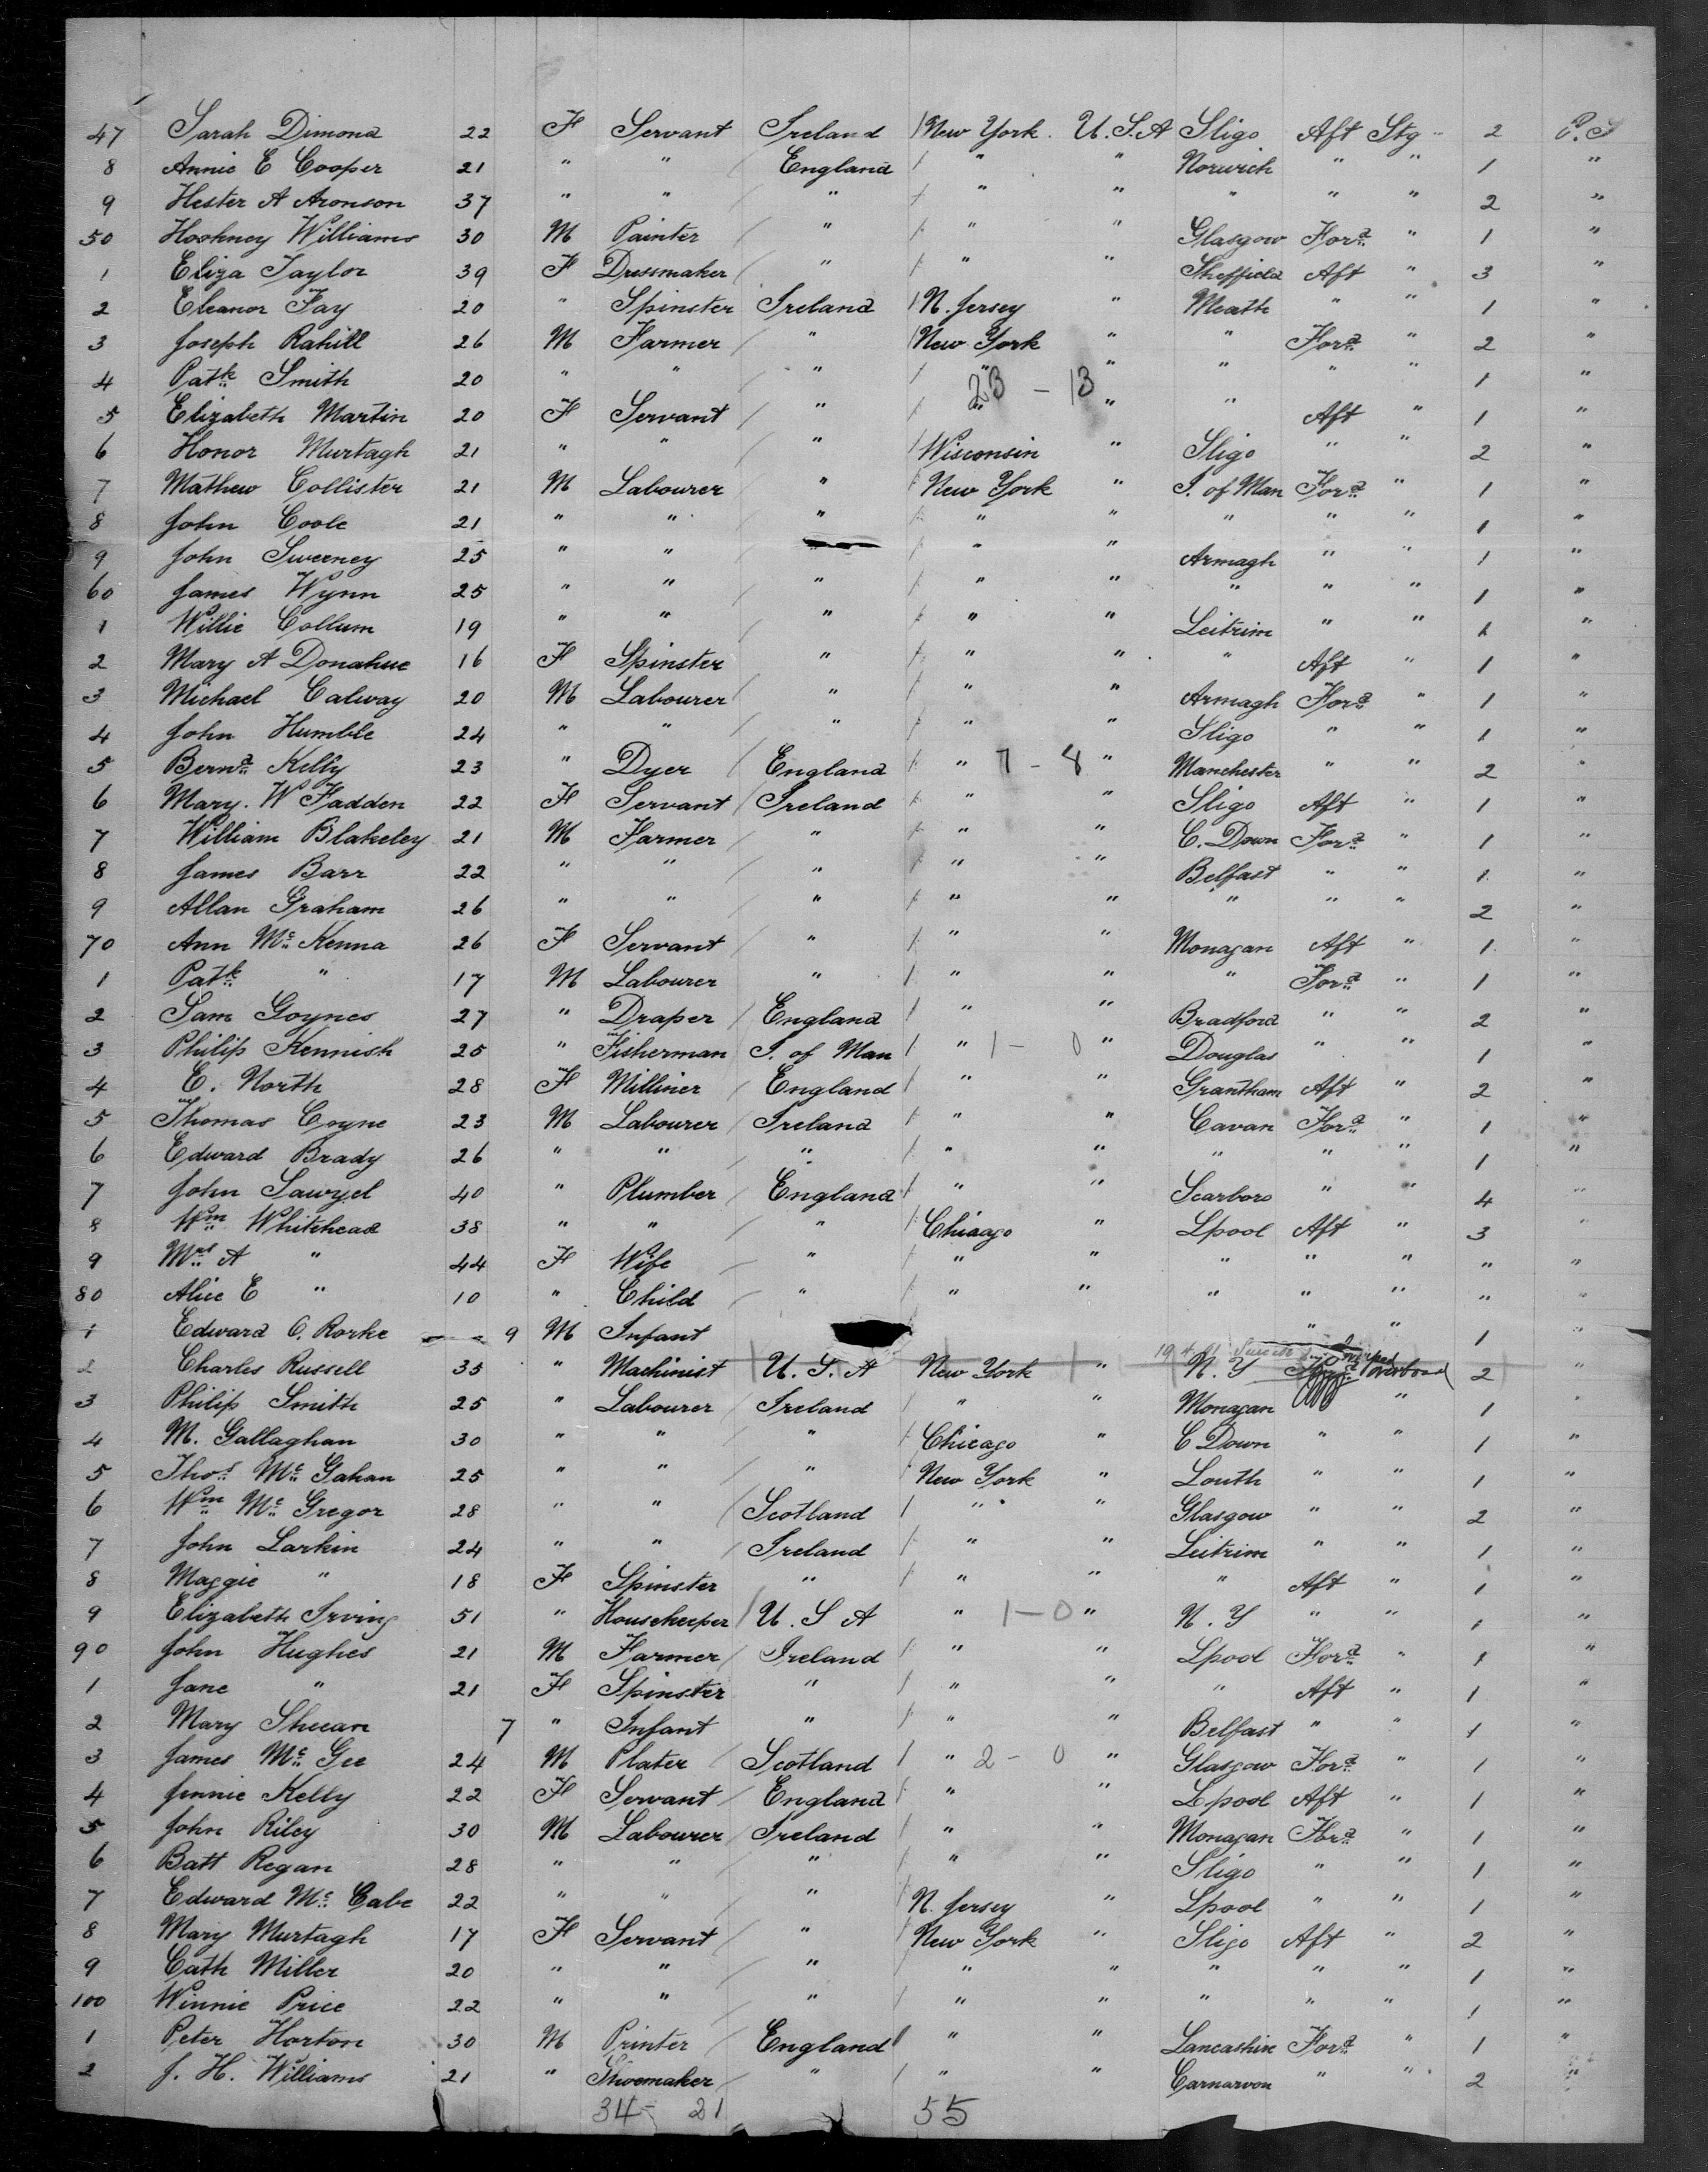 47 Sarah Dimond 22 F Servant Ireland New York U.S.A Sligo Aft Stg 2 P.S
8 Annie E Cooper 21 " " England " " Norwich " " 1 "
9 Hester A Aronson 37 " " " " " " " " 2 "
50 Williams 30 M Painter " " " Glasgow Ford " 1 "
1 Eliza Taylor 39 F Dressmaker " " " Sheffield Aft " 3 "
2 Eleanor Fay 20 " Spinster Ireland N. Jersey " Meath " " 1 "
3 Joseph Rahill 26 M Farmer " New York " " Ford " 2 "
4 Patk Smith 20 " " " " " " " " 1 "
23 - 13
5 Elizabeth Martin 20 F Servant " " " " Aft " 1 "
6 Honor Murtagh 21 " " " Wisconsin " Sligo " " 2 "
7 Mathew Collister 21 M Labourer " New York " I. of Man Ford " 1 "
8 John Coole 21 " " " " " " " " 1 "
9 John Sweeney 25 " " " " Armagh " " 1 "
60 James Wynn 25 " " " " " " " " 1 "
1 Willie Collum 19 " " " " " Leitrim " " 1 "
2 Mary A Donahue 16 F Spinster " " " " Aft " 1 "
3 Michael Calway 20 M Labourer " " " Armagh Ford " 1 "
4 John Humble 24 " " " " " Sligo " " 1 "
5 Bernd Kelly 23 " Dyer England " 7 - 8 " Manchester " " 2 "
6 Mary. W Fadden 22 F Servant Ireland " " Sligo Aft " 1 "
7 William Blakeley 21 M Farmer " " " C. Down Ford " 1 "
8 James Barr 22 " " " " " Belfast " " 1 "
9 Allan Graham 26 " " " " " " " " 2 "
70 Ann Mc Kenna 26 F Servant " " " Monagan Aft " 1 "
1 Patk " 17 M Labourer " " " " Ford " 1 "
2 Sam Goynes 27 " Draper England " " Bradford " " 2 "
3 Philip Kennish 25 " Fisherman I. of Man " 1 - 0 " Douglas " " 1 "
4 E. North 28 F Milliner England " " Grantham Aft " 2 "
5 Thomas Cryne 23 M Labourer Ireland " " Cavan Ford " 1 "
6 Edward Brady 26 " " " " " " " " 1 "
7 John 40 " Plumber England " " Scarboro " " 4 "
8 Wm Whitehead 38 " " " Chicago " Lpool Aft " 3 "
9 Mrs A " 44 F Wife " " " " " " " "
80 Alice E " 10 " Child " " " " " " " "
1 Edward O. Rorke 9 M Infant " " 1 "
2 Charles Russell 35 " Machinist U.S.A New York " N.Y overboard 2 "
3 Philip Smith 25 " Labourer Ireland " " Monagan " 1 "
4 M. Gallaghan 30 " " " Chicago " C Down " " 1 "
5 Thos Mc Gahan 25 " " " New York " Louth " " 1 "
6 Wm Mc Gregor 28 " " Scotland " " Glasgow " " 2 "
7 John Larkin 24 " " Ireland " " Leitrim " " 1 "
8 Maggie " 18 F Spinster " " " " Aft " 1 "
9 Elizabeth Irving 51 " Housekeeper U.S A " 1 - 0 " N.Y " " 1 "
90 John Hughes 21 M Farmer Ireland " " Lpool Ford " 1 "
1 Jane " 21 F Spinster " " " " Aft " 1 "
2 Mary Sheean 7 " Infant " " " Belfast " " 1 "
3 James Mc Gee 24 M Plater Scotland " 2 - 0 " Glasgow Ford " 1 "
4 Jennie Kelly 22 F Servant England " " Lpool Aft " 1 "
5 John Riley 30 M Labourer Ireland " " Monagan Ford " 1 "
6 Batt Regan 28 " " " " " Sligo " " 1 "
7 Edward Mc Cabe 22 " " " N. Jersey " Lpool " " 1 "
8 Mary Murtagh 17 F Servant " New York " Sligo Aft " 2 "
9 Cath Miller 20 " " " " " " " " 1 "
100 Winnie Price 22 " " " " " " " " 1 "
1 Peter Horton 30 M Printer England " " Lancashire Ford " 1 "
2 J. H. Williams 21 " Shoemaker " " " Carnarvon " " 2 "
34 - 21 55